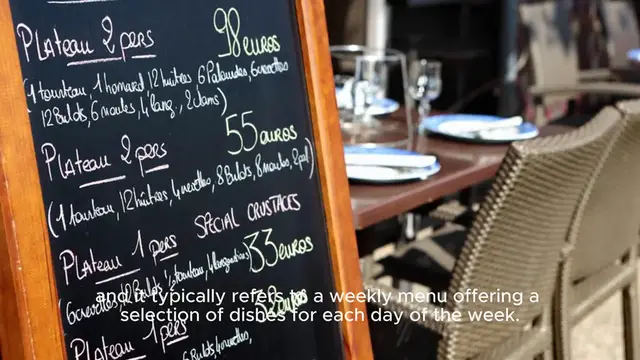 Plateau 2 pers 98 euros
(1 tourteau, 1 homard, 12 huîtres, 6 Palourdes, 6 crevettes
12 Bulots, 6 moules, 4 lang., 2 clams)
Plateau 2 pers 55 euros
(1 tourteau, 12 huîtres, 4 crevettes, 8 Bulots, 8 moules, 2 pal)
SPÉCIAL CRUSTACÉS
Plateau 1 pers 33 euros
(6 crevettes, ½ tourteau, 4 langoustines)
Plateau 1 pers euros
6 Bulots
and it typically refers to a weekly menu offering a
selection of dishes for each day of the week.